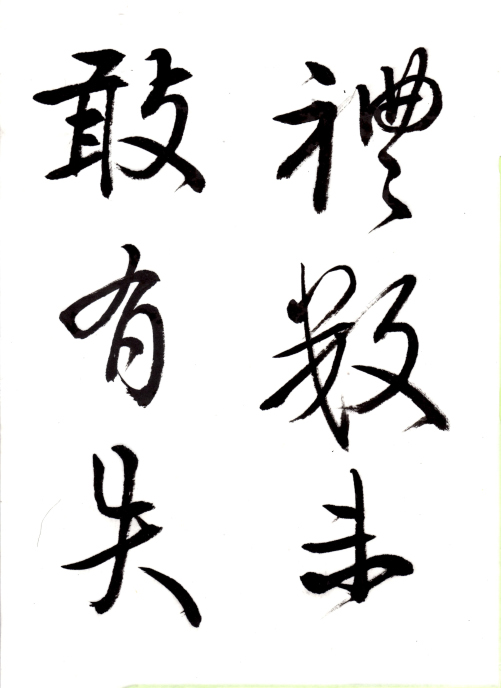 禮数未
敢有失